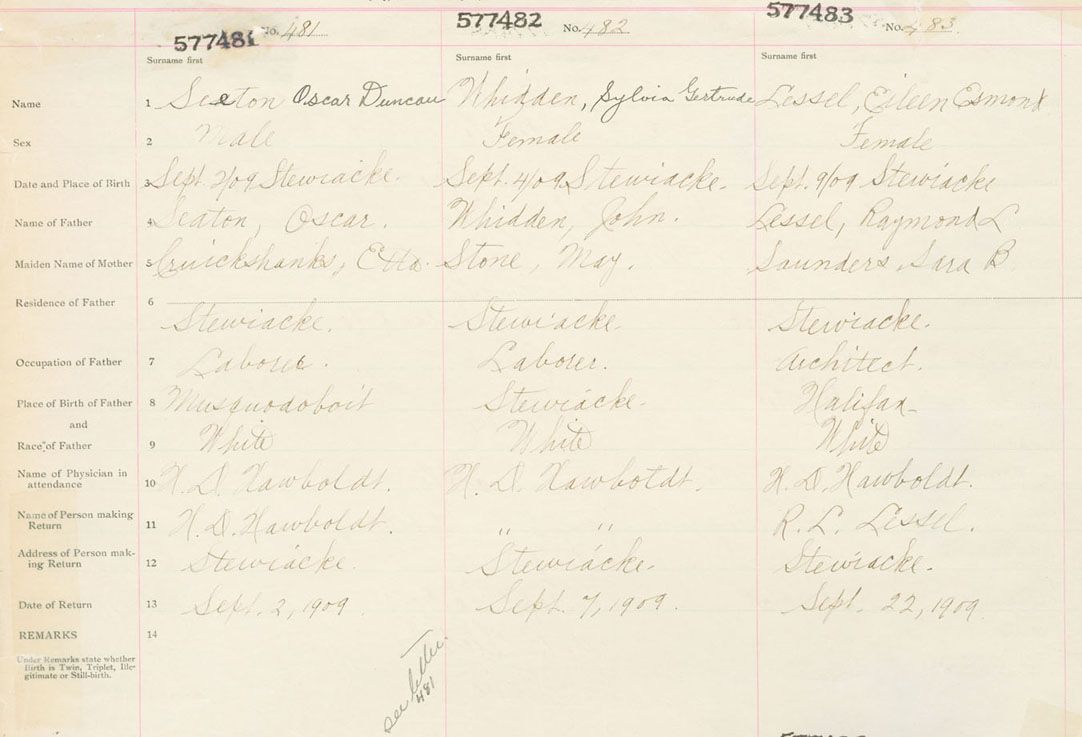 577481 No. 481 577482 No. 482 577483 No. 483
Surname first Surname first Surname first
Name 1 Seeton Oscar Duncan Whidden, Sylvia Gertrude Lessel, Eileen Esmond
Sex 2 Male Female Female
Date and Place of Birth 3 Sept. 2/09 Stewiacke. Sept. 4/09 Stewiacke. Sept. 9/09 Stewiacke
Name of Father 4 Seaton, Oscar. Whidden, John. Lessel, Raymond L
Maiden Name of Mother 5 Cruickshanks, Etta. Stone, May. Saunders, Sara B
Residence of Father 6
Stewiacke. Stewiacke. Stewiacke.
Occupation of Father 7 Laborer. Laborer. Architect.
Place of Birth of Father 8 Musquodoboit Stewiacke. Halifax
and
Race of Father 9 White White White
Name of Physician in
attendance 10 H. D. Hawboldt. H. D. Hawboldt. H. D. Hawboldt.
Name of Person making
Return 11 H. D. Hawboldt. " " R. L. Lessel.
Address of Person mak-
ing Return 12 Stewiacke. Stewiacke. Stewiacke.
Date of Return 13 Sept. 2, 1909 Sept. 7, 1909. Sept. 22, 1909
REMARKS 14
Under Remarks state whether
Birth is Twin, Triplet, Ille-
gitimate or Still-birth.
see letter
481